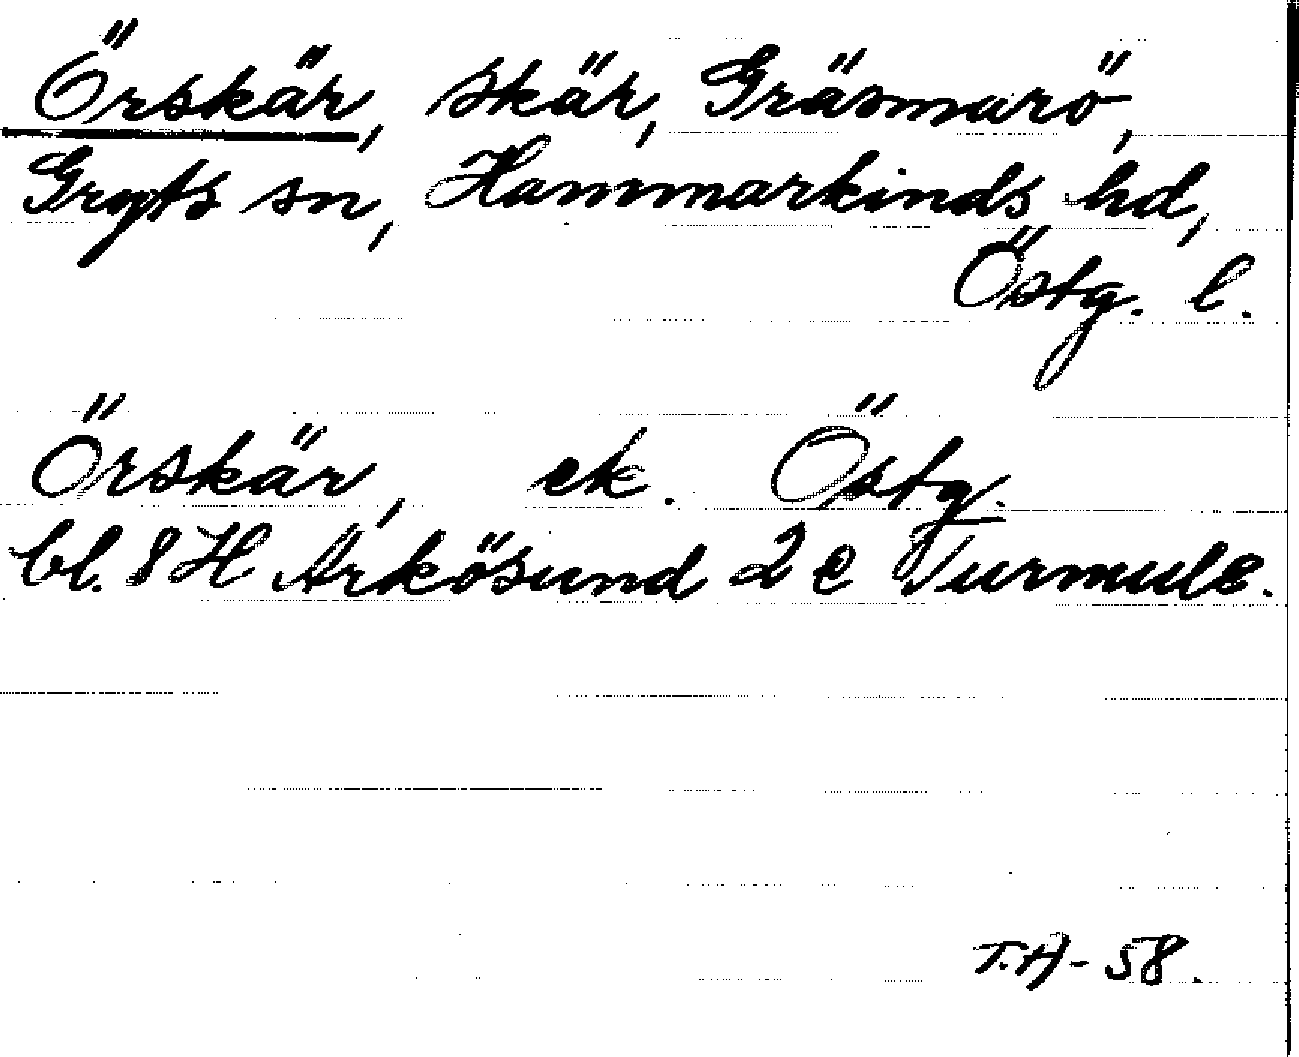 Örskär, skär, Gräsmarö,
Gryts sn, Hammarkinds hd,
Östg. l.
Örskär, ek. Östg.
bl. 8 H Arkösund 2 e Turmule.
T.A-58.